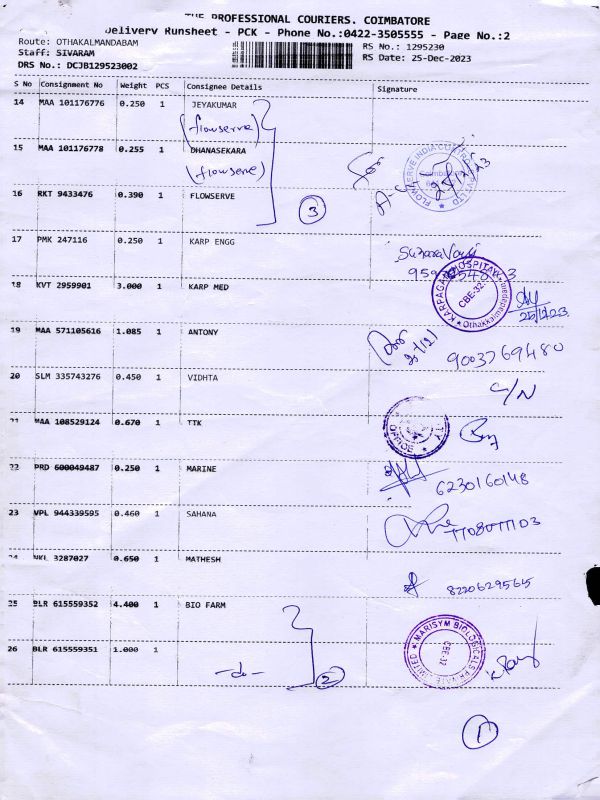 THE PROFESSIONAL COURIERS. COIMBATORE
Delivery Runsheet - PCK - Phone No.:0422-3505555 - Page No.:2
Route: OTHAKALMANDABAM
RS No.: 1295230
Staff: SIVARAM
RS Date: 25-Dec-2023
DRS No.: DCJB129523002
S No Consignment No Weight PCS Consignee Details Signature
14 MAA 101176776 0.250 1 JEYAKUMAR
(flowserve)
15 MAA 101176778 0.255 1 DHANASEKARA
(flowserve)
FLOWSERVE INDIA PVT LTD
16 RKT 9433476 0.390 1 FLOWSERVE
3
17 PMK 247116 0.250 1 KARP ENGG
18 KVT 2959901 3.000 1 KARP MED
KARPAGAM HOSPITAL
CBE-32
25/12/23
19 MAA 571105616 1.085 1 ANTONY
25/12/
9003769480
20 SLM 335743276 0.450 1 VIDHTA
C/N
21 MAA 108529124 0.670 1 TTK
OFFICE
22 PRD 600049487 0.250 1 MARINE
6230160148
23 VPL 944339595 0.460 1 SAHANA
7708077103
24 NKL 3287027 0.650 1 MATHESH
8220629565
25 BLR 615559352 4.400 1 BIO FARM
26 BLR 615559351 1.000 1
-do-
2
MARISYM BIOLOGICALS PRIVATE LIMITED
CBE-32
1